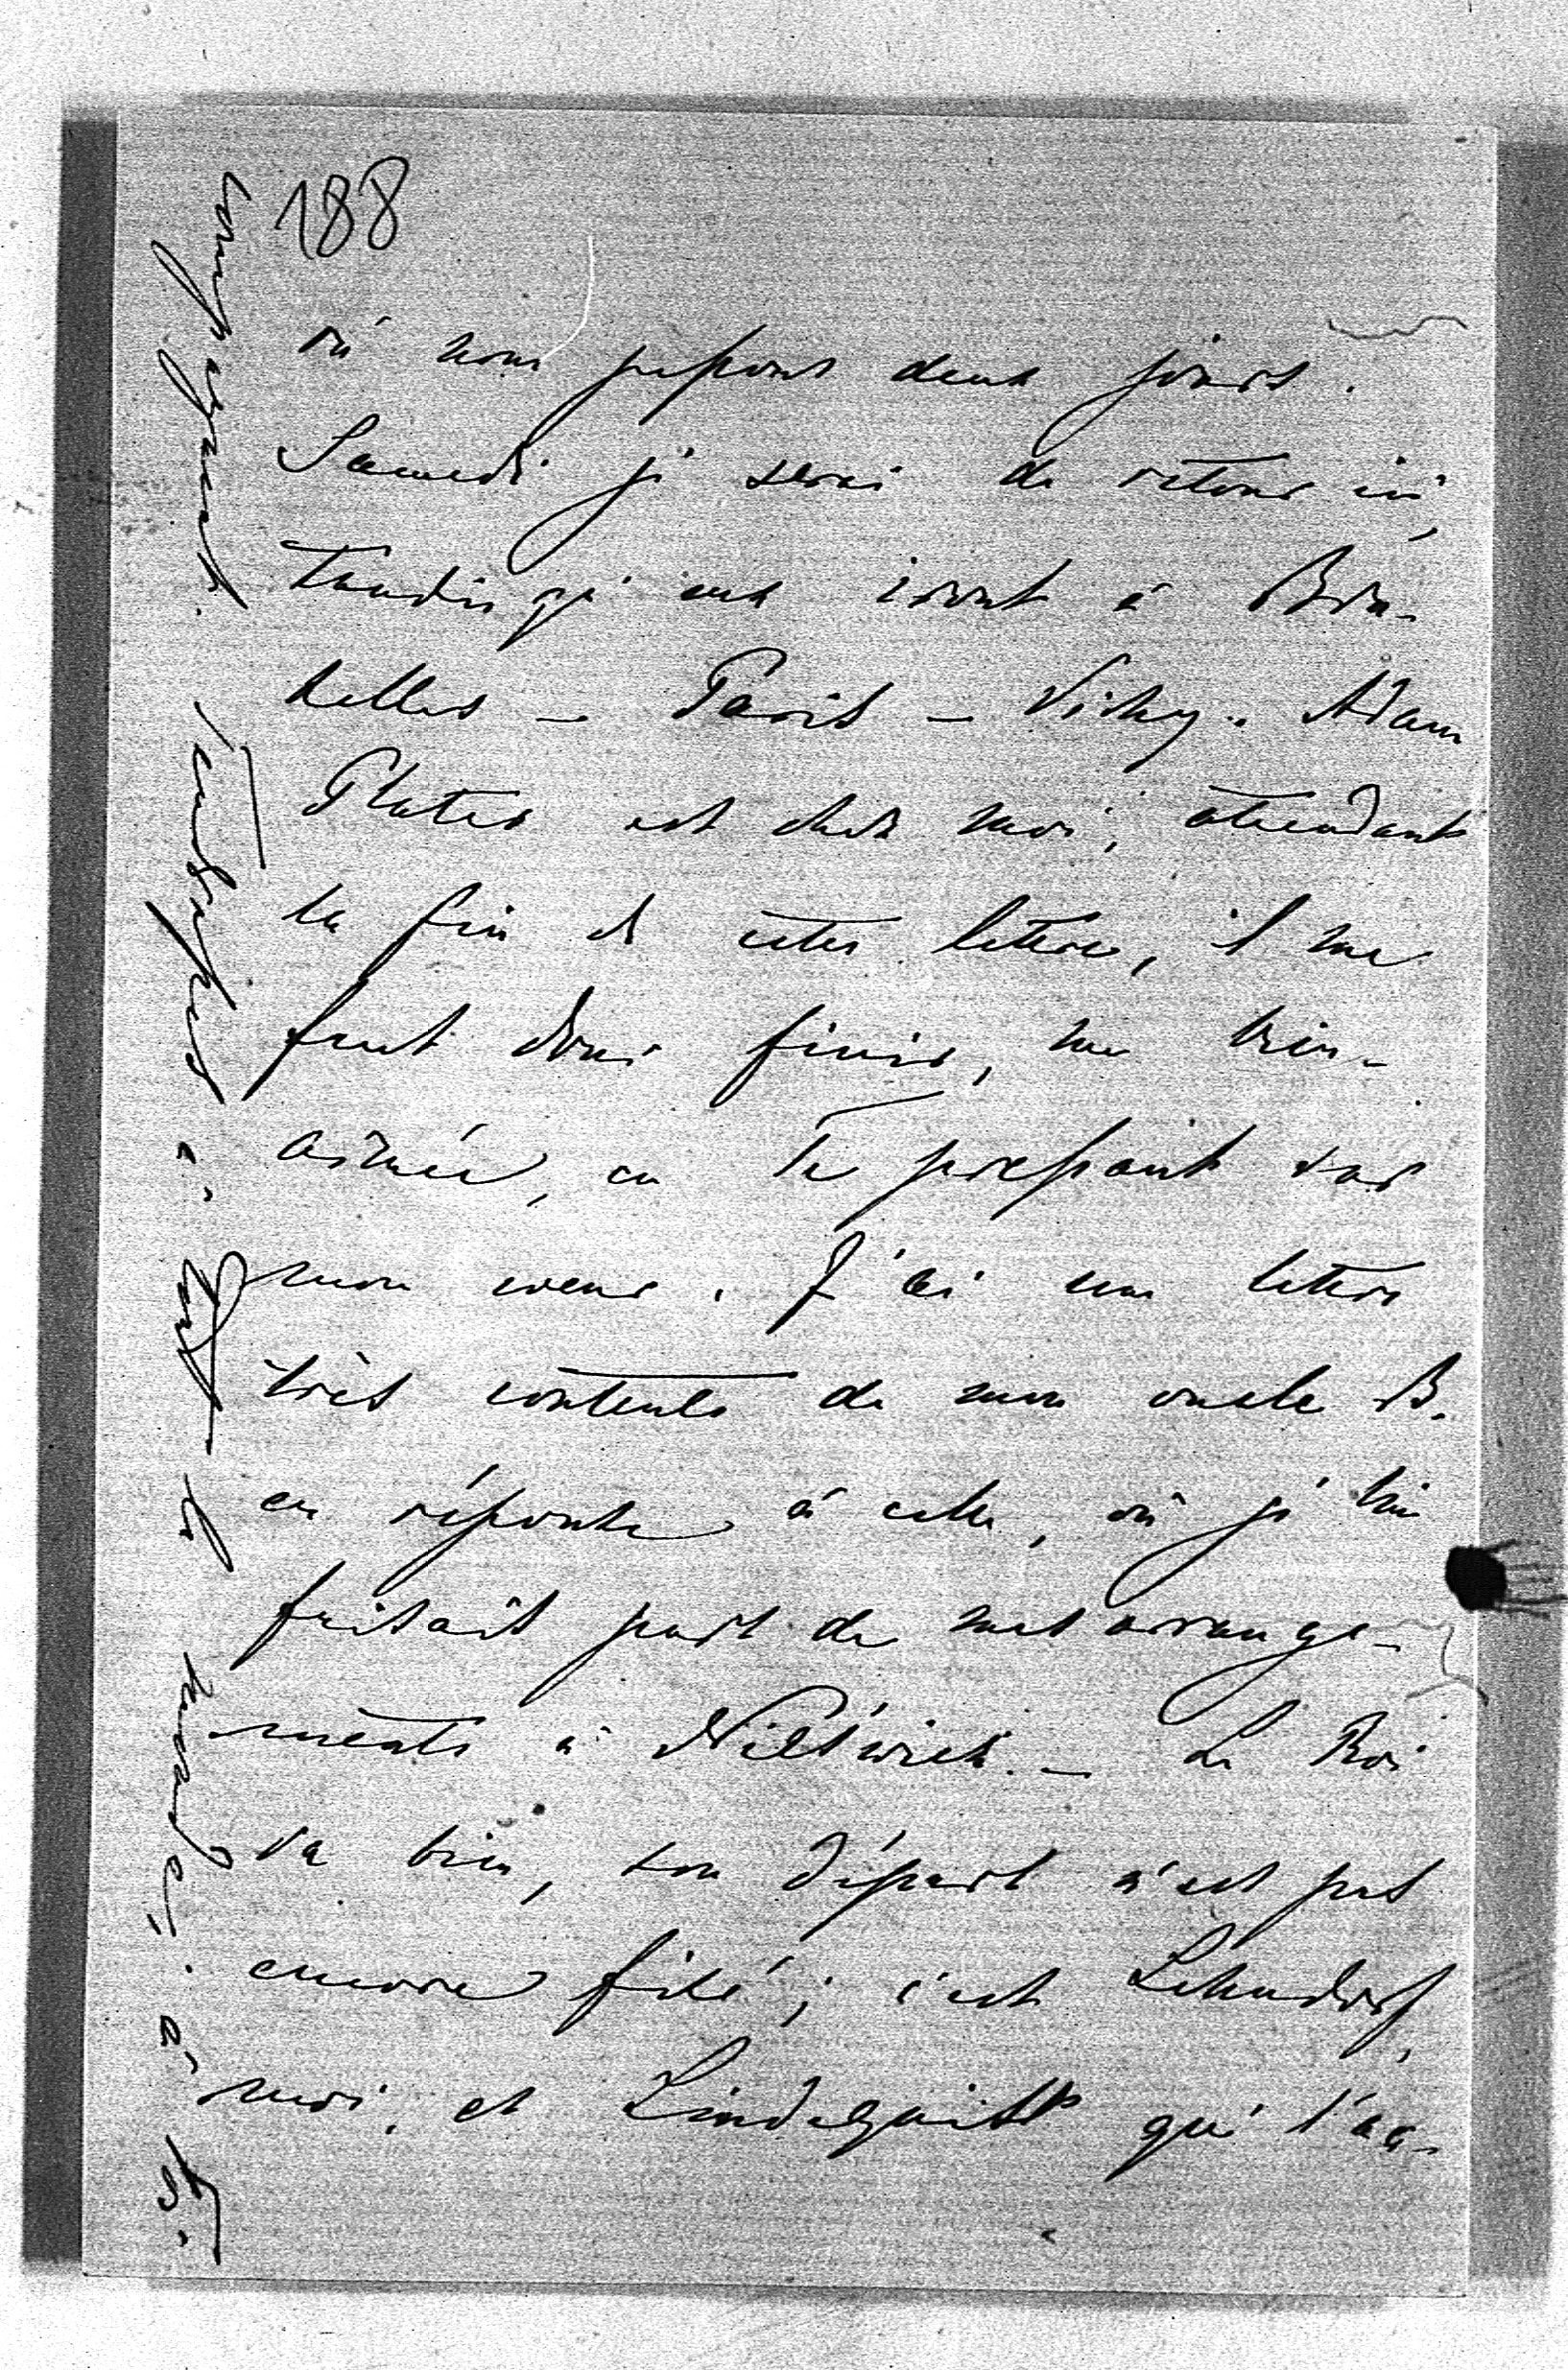 188
où nous passons deux jours.
Samedi je serai de retour ici,
tandis qu'eux iront à Bru-
xelles – Paris – Vichy. Adam
Plater est chez moi, attendant
la fin de cette lettre, il me
faut donc finir, ma bien-
aimée, en Te pressant sur
mon coeur. J'ai une lettre
très contente de mon oncle B.
en réponse à celle, où je lui
faisais part de mes arrange-
ments à Nieświeź. – Le Roi
va bien, son départ n'est pas
encore fixé; c'est Lehndorf,
moi, et Lindequist qui l'ac-
compagnent.